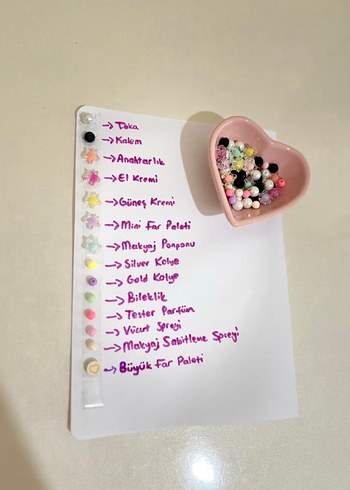 → Toka
→ Kalem
→ Anahtarlık
→ El Kremi
→ Güneş Kremi
→ Mini Far Paleti
→ Makyaj Ponponu
→ Silver Kolye
→ Gold Kolye
→ Bileklik
→ Tester Parfüm
→ Vücut Spreyi
→ Makyaj Sabitleme Spreyi
→ Büyük Far Paleti